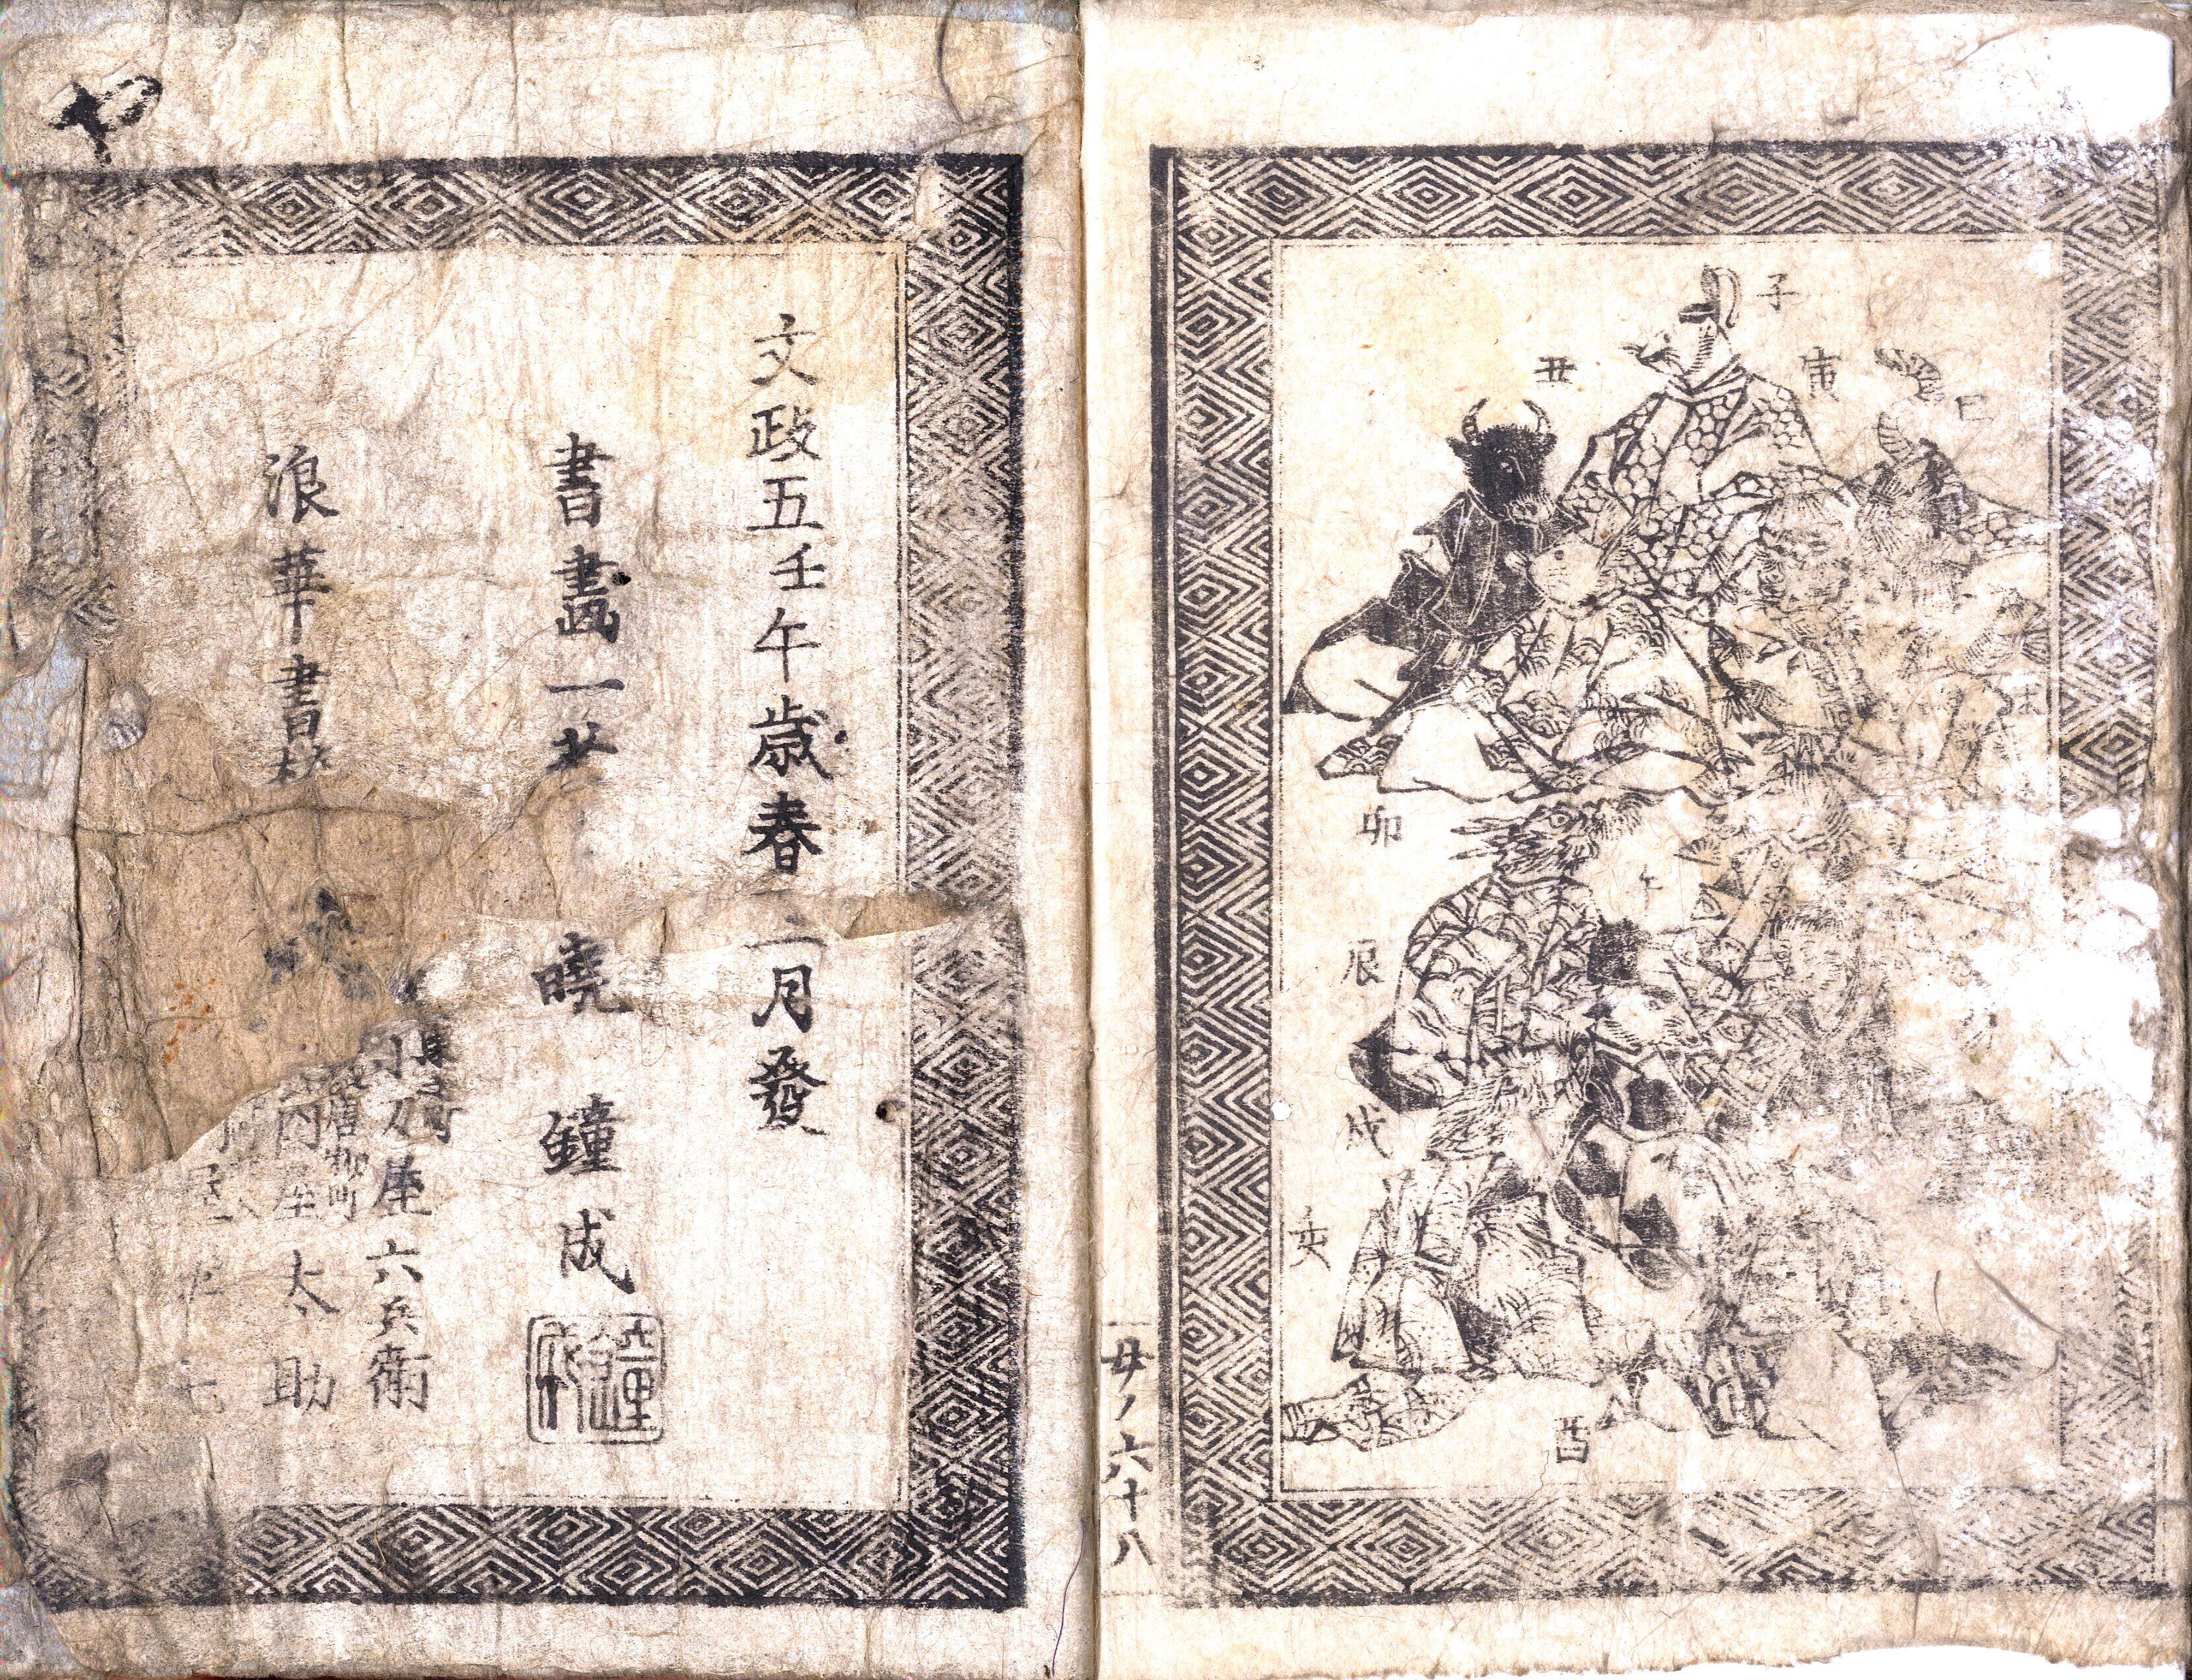 子
丑
寅
巳
未
卯
午
辰
戌
亥
酉
廿ノ六十八
文政五壬午歳春
月發
書畫一
曉鐘成
鐘成
浪華書
小刀屋六兵衛
唐物町
河内屋太助